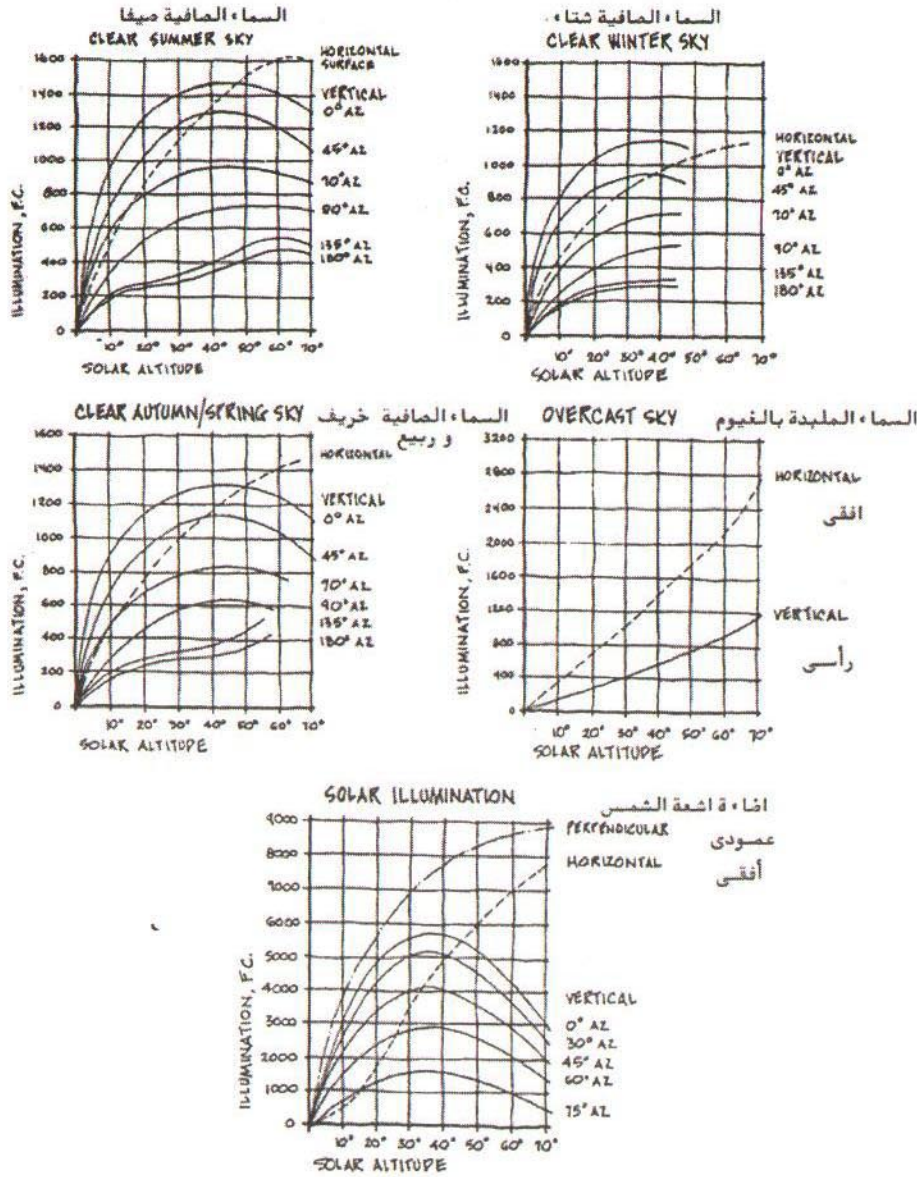 السماء الصافية صيفا
CLEAR SUMMER SKY
1600
1400
1200
1000
800
600
400
200
0
ILLUMINATION, F.C.
HORIZONTAL
SURFACE
VERTICAL
0° AZ
45° AZ
70° AZ
90° AZ
135° AZ
180° AZ
10° 20° 30° 40° 50° 60° 70°
SOLAR ALTITUDE
السماء الصافية شتاء
CLEAR WINTER SKY
1600
1400
1200
1000
800
600
400
200
0
ILLUMINATION, F.C.
HORIZONTAL
VERTICAL
0° AZ
45° AZ
70° AZ
90° AZ
135° AZ
180° AZ
10° 20° 30° 40° 50° 60° 70°
SOLAR ALTITUDE
CLEAR AUTUMN/SPRING SKY
السماء الصافية خريف
و ربيع
1600
1400
1200
1000
800
600
400
200
0
ILLUMINATION, F.C.
HORIZONTAL
VERTICAL
0° AZ
45° AZ
70° AZ
90° AZ
135° AZ
180° AZ
10° 20° 30° 40° 50° 60° 70°
SOLAR ALTITUDE
OVERCAST SKY
السماء الملبدة بالغيوم
3200
2800
2400
2000
1600
1200
800
400
0
ILLUMINATION, F.C.
HORIZONTAL
افقى
VERTICAL
رأسى
10° 20° 30° 40° 50° 60° 70°
SOLAR ALTITUDE
SOLAR ILLUMINATION
اضاءة اشعة الشمس
9,000
8000
7000
6000
5000
4000
3000
2000
1000
0
ILLUMINATION, F.C.
PERPENDICULAR
عمودى
HORIZONTAL
أفقى
VERTICAL
0° AZ
30° AZ
45° AZ
60° AZ
75° AZ
10° 20° 30° 40° 50° 60° 70°
SOLAR ALTITUDE